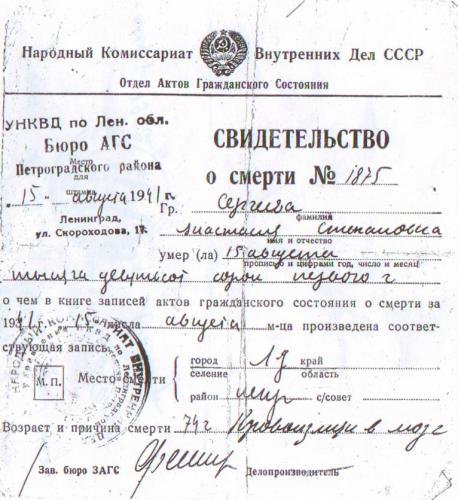 Народный Комиссариат Внутренних Дел СССР
Отдел Актов Гражданского Состояния
УНКВД по Лен. обл.
Бюро АГС
Место
Петроградского района
для
"15" августа 1941 г.
штампа
Ленинград,
ул. Скороходова, 17.
СВИДЕТЕЛЬСТВО
о смерти № 1875
Гр. Сергеева
фамилия
Анастасия Степановна
имя и отчество
умер (ла) 15 августа
прописью и цифрами год, число и месяц
тысяча девятьсот сорок первого г
о чем в книге записей актов гражданского состояния о смерти за
1941 г. 15 числа августа м-ца произведена соответ-
ствующая запись.
М. П.
Место смерти
город Лд край
селение область
район с/совет
Возраст и причина смерти 74 г Кровоизлия в мозг
Зав. бюро ЗАГС Делопроизводитель